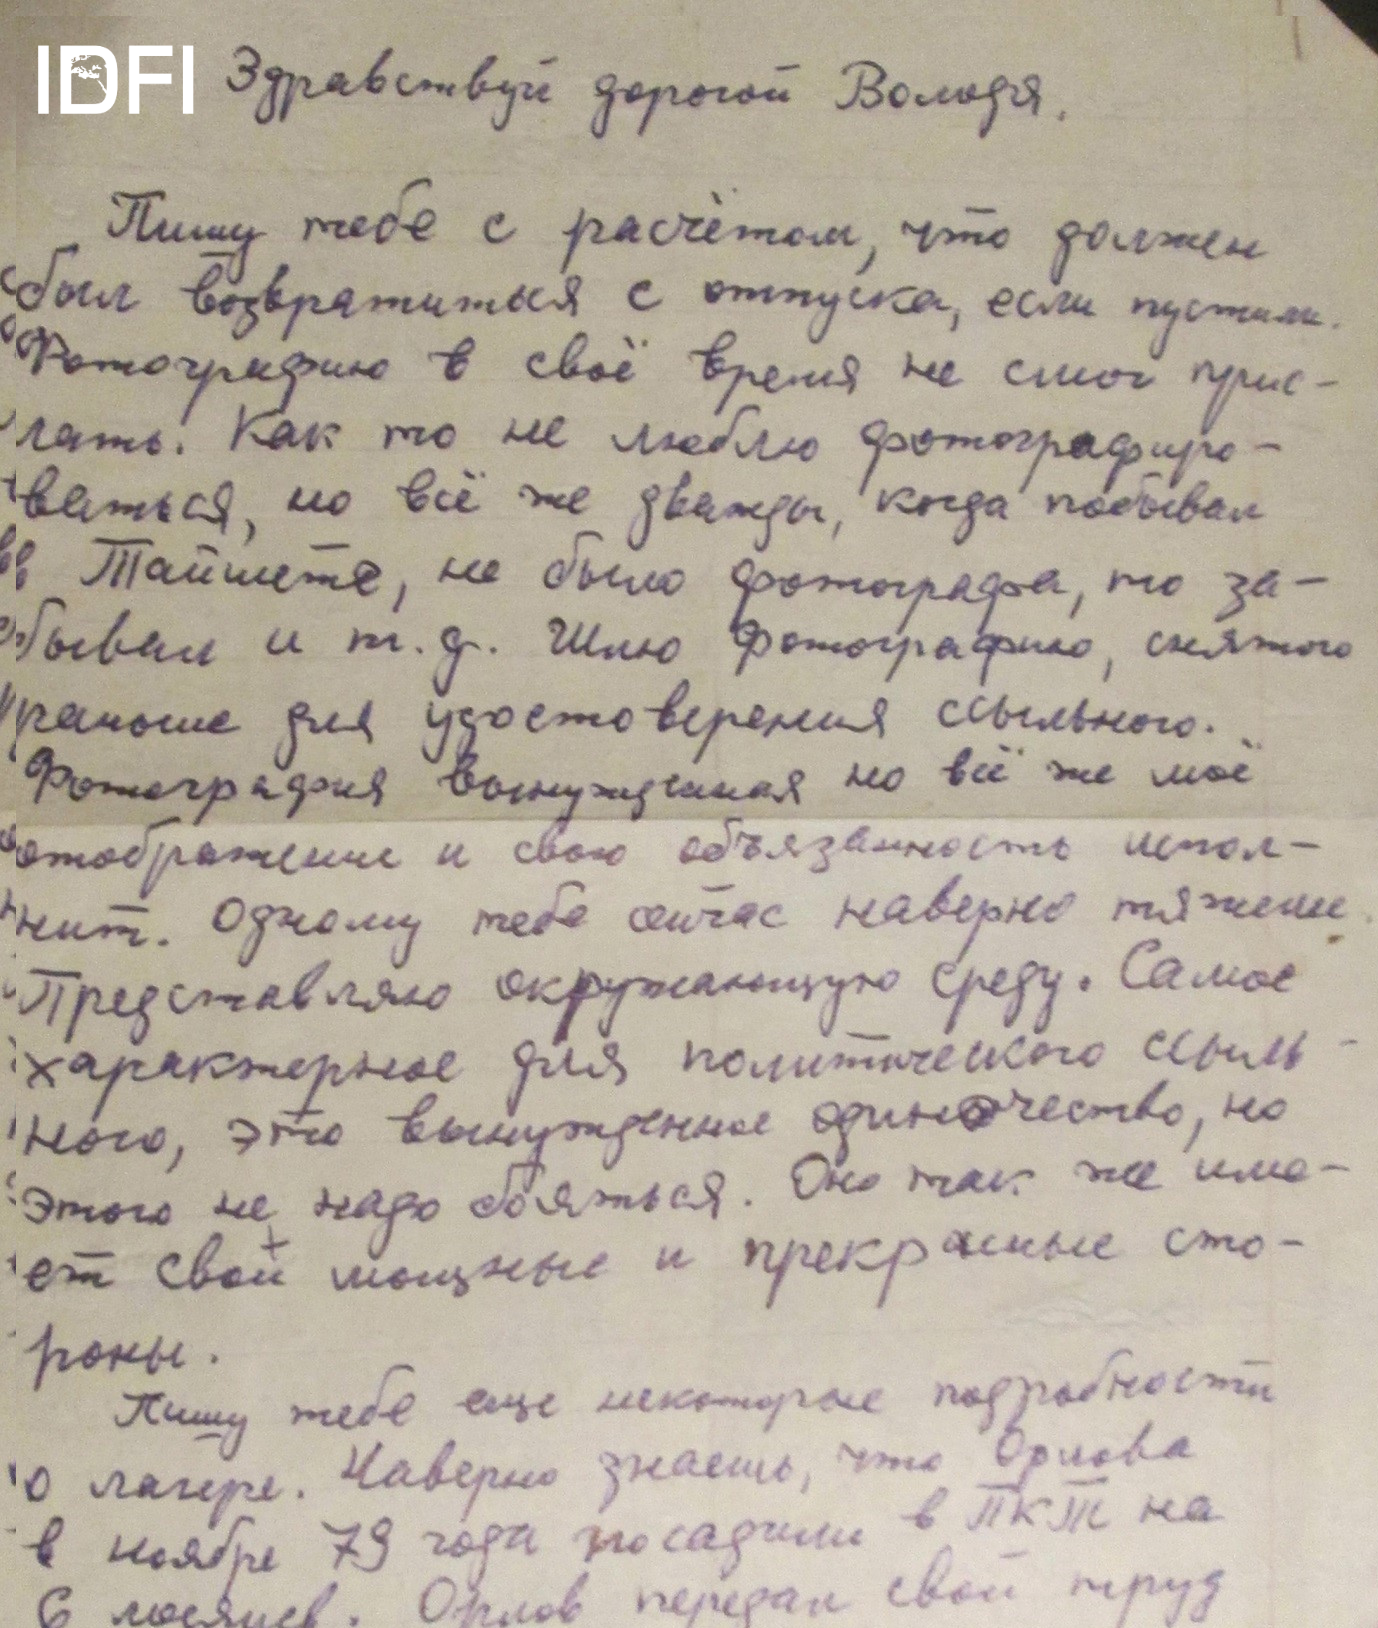 IDFI
Здравствуй дорогой Володя.
Пишу тебе с расчётом, что должен
был возвратиться с отпуска, если пустили.
Фотографию в своё время не смог прис-
лать. Как то не люблю фотографиро-
ваться, но всё же дважды, когда побывал
в Тайшете, не было фотографа, то за-
бывал и т.д. Шлю фотографию, снятого
раньше для удостоверения ссыльного.
Фотография вынужденная но всё же моё
отображение и свою объязанность испол-
нит. Одному тебе сейчас наверно тяжелее.
Представляю окружающую среду. Самое
характерное для политического ссыль-
ного, это вынужденное одиночество, но
этого не надо бояться. Оно так же име-
ет свои мощные и прекрасные сто-
роны.
Пишу тебе еще некоторые подробности
о лагере. Наверно знаешь, что Орлова
в ноябре 79 года посадили в ПКТ на
6 месяцев. Орлов передал свой труд